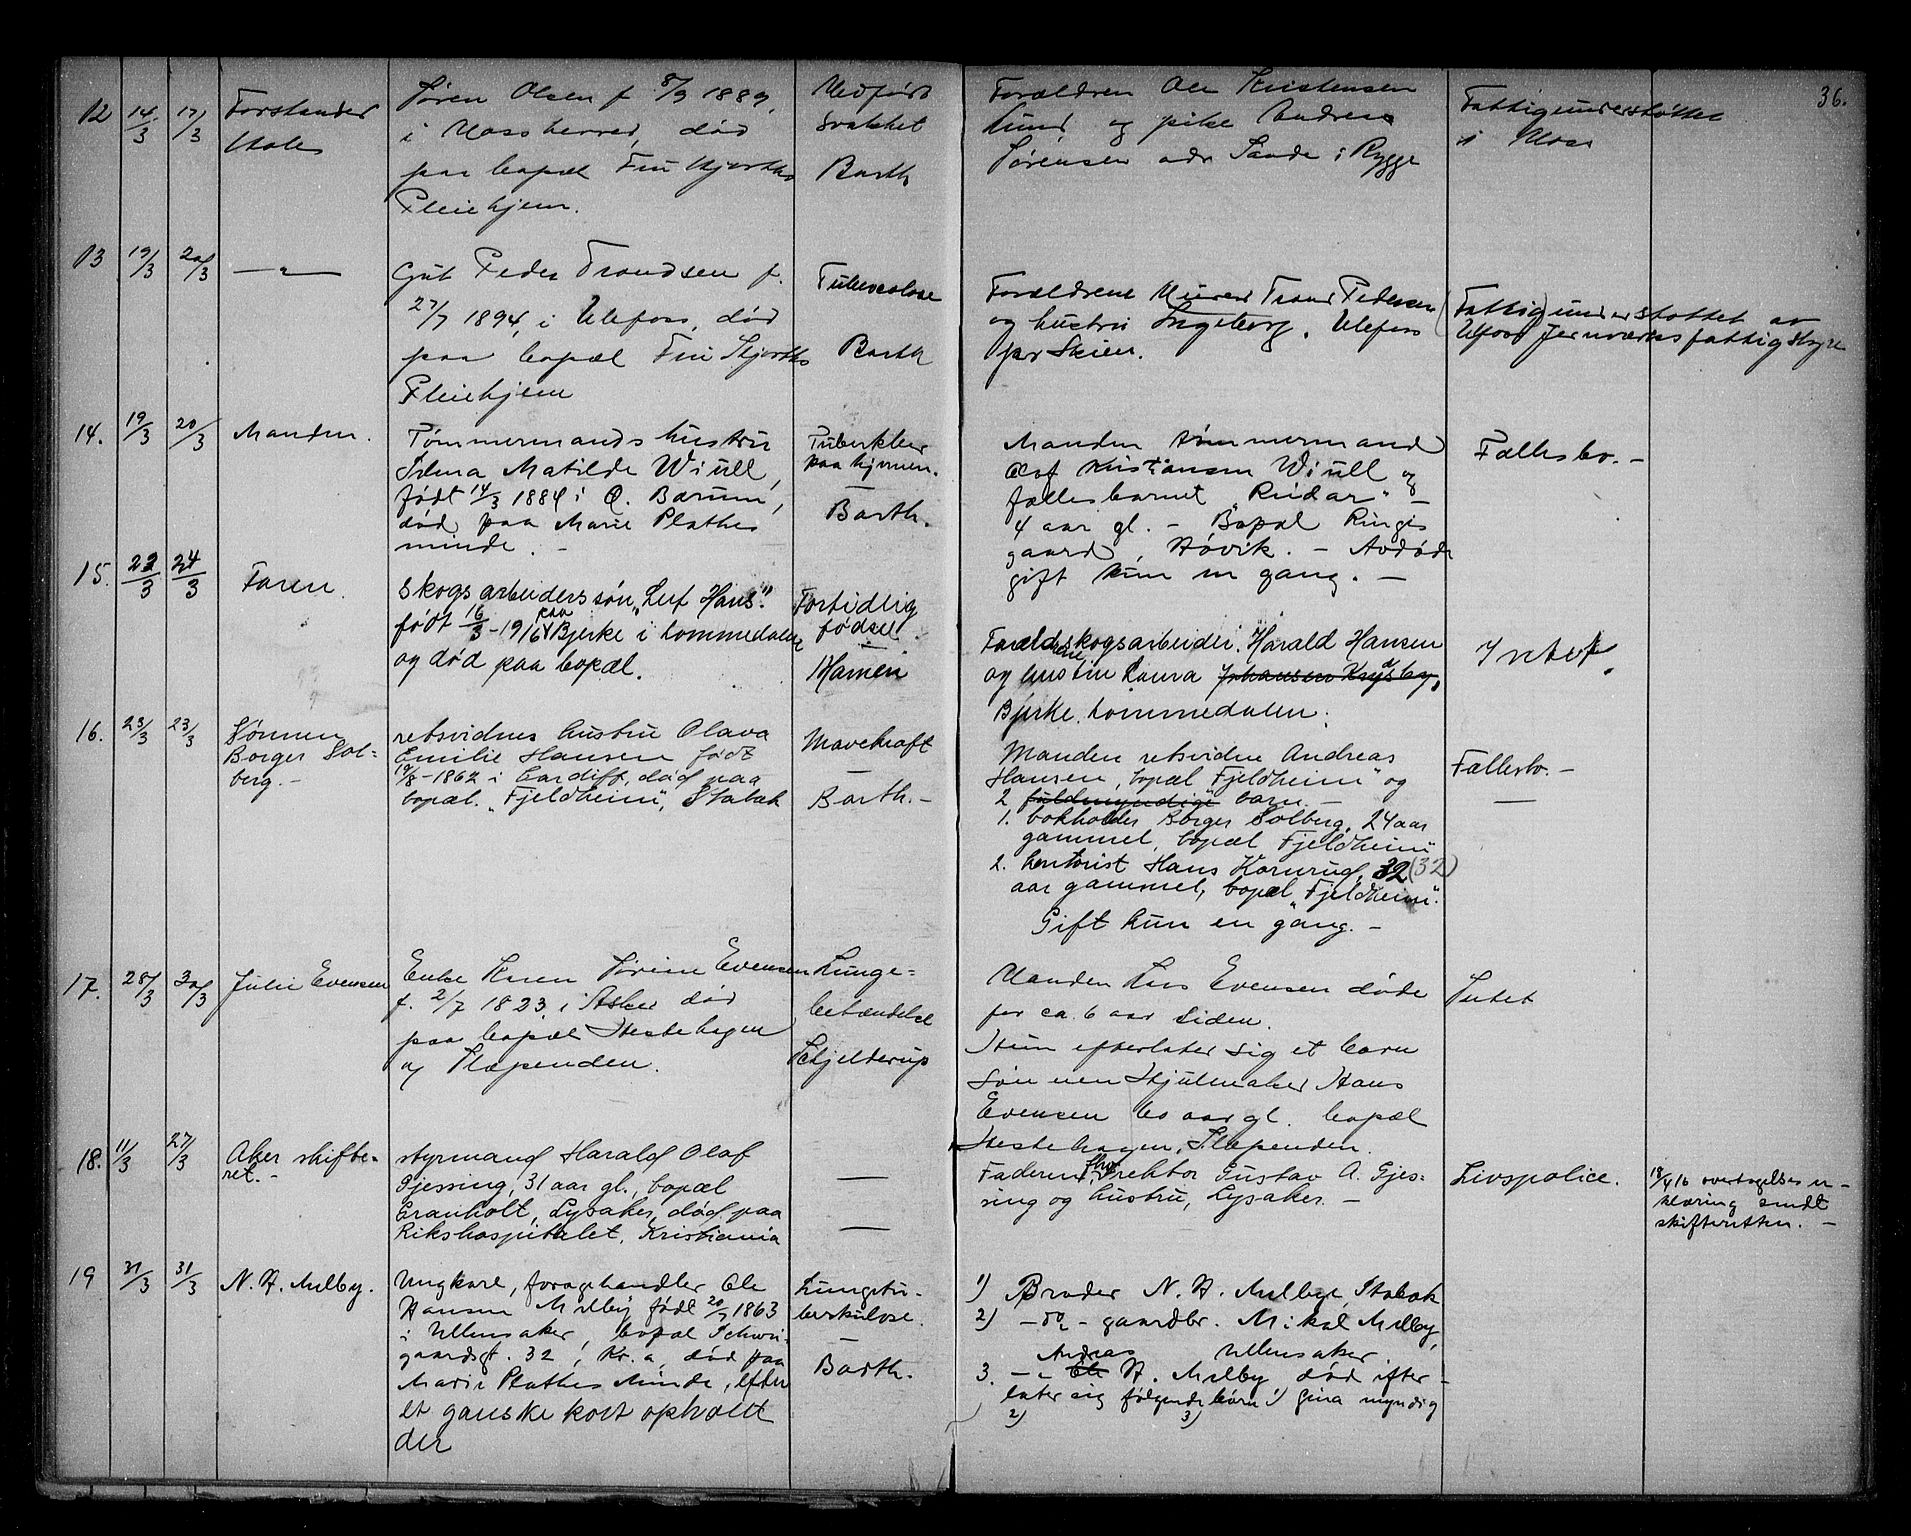 36.
12 14/3 17/3 Forstander
Søren Olsen f 8/9 1889,
i Moss herred, død
paa bopæl Fru Hjorths
Pleiehjem.
Medfødt
svakhet
Barth
Forældren Ole Kristensen
Lund og pike Andrea
Sørensen adr Saude i Rygge
Fattigunderstøttet
i Moss
13 19/3 20/3 — " —
Gut Peder Trondsen f.
27/7 1894, i Ulefoss, død
paa bopæl Fru Hjorths
Pleiehjem
Tuberculose
Barth
Forældrene Murer Trond Pedersen
og hustru Ingeborg, Ulefoss
pr Skien.
(Fattig) understøttet av
Ulefoss Jernværks fattigstyre
14. 19/3 20/3 Manden.
Tømmermands hustru
Selma Matilde Wiull,
født 14/3 1884 i Ø. Bærum,
død paa Marie Plathes
minde. -
Tuberkler
paa hjernen.
-
Barth.
Manden tømmermand
Olaf Kristiansen Wiull og
fællesbarnet "Reidar" -
4 aar gl. - Bopæl Ringis
gaard, Høvik. - Avdøde
gift kun en gang. -
Fællesbo. -
15. 23/3 24/3 Faren.
Skogsarbeiders søn, "Leif Hans".
født 16/3 - 1916 paa Bjerke i Lommedalen
og død paa bopæl.
Fortidlig
fødsel.
-
Hamen
Forældrene skogsarbeider Harald Hansen
og hustru Laura Johansen Krydsby,
Bjerke, Lommedalen.
Intet.
16. 23/3 23/3 Sønnen
Borger Sol-
berg. -
retsvidnes hustru Olava
Emilie Hansen født
19/8 - 1862 i Cardiff, død paa
bopæl. "Fjeldheim", Stabæk
Mavekræft
-
Barth. -
Manden retsvidne Andreas
Hansen, bopæl "Fjeldheim" og
2 fuldmyndige barn. -
1. bokholder Borger Solberg, 24 aar
gammel, bopæl Fjeldheim
2. kontorist Hans Hornrud, 32 (32)
aar gammel, bopæl "Fjeldheim".
Gift kun en gang. -
Fællesbo. -
—
17. 28/3 30/3 Julie Evensen
Enke Karen Sørine Evensen
f. 2/7 1823, i Asker død
paa bopæl Hestehagen
Slæpenden.
Lunge-
betændelse
Schjelderup
Manden Lars Evensen døde
for ca. 6 aar siden.
Hun efterlater sig et barn
Sønnen Hjulmaker Hans
Evensen 60 aar gl. bopæl
Hestehagen, Slæpenden.
Intet
18. 11/3 27/3 Aker skifte-
ret. -
styrmand Harald Olaf
Gjessing, 31 aar gl., bopæl
Granholt, Lysaker, død paa
Rikshospitalet, Kristiania
—
—
Faderen, direktør Gustav A. Gjes-
sing og hustru, Lysaker. -
Livspolice.
18/4 16 overtagelses er-
klæring sendt
skifteretten. -
19 31/3 31/3 N. H. Melby.
Ungkarl, foragehandler Ole
Hansen Melby født 20/7 1863
i Ullensaker, bopæl Schwei-
gaardsgt. 32, Kr.a, død paa
Marie Plathes Minde, efter
et ganske kort ophold
der
Lungetu-
berkulose.
-
Barth.
1) Broder N. H. Melbye, Stabæk
2) - do - gaardbr. Mikal Melby,
Ullensaker
3. - " - Ole Andreas H. Melby død efter-
later sig følgende børn 1) Gina myndig
2) 3)